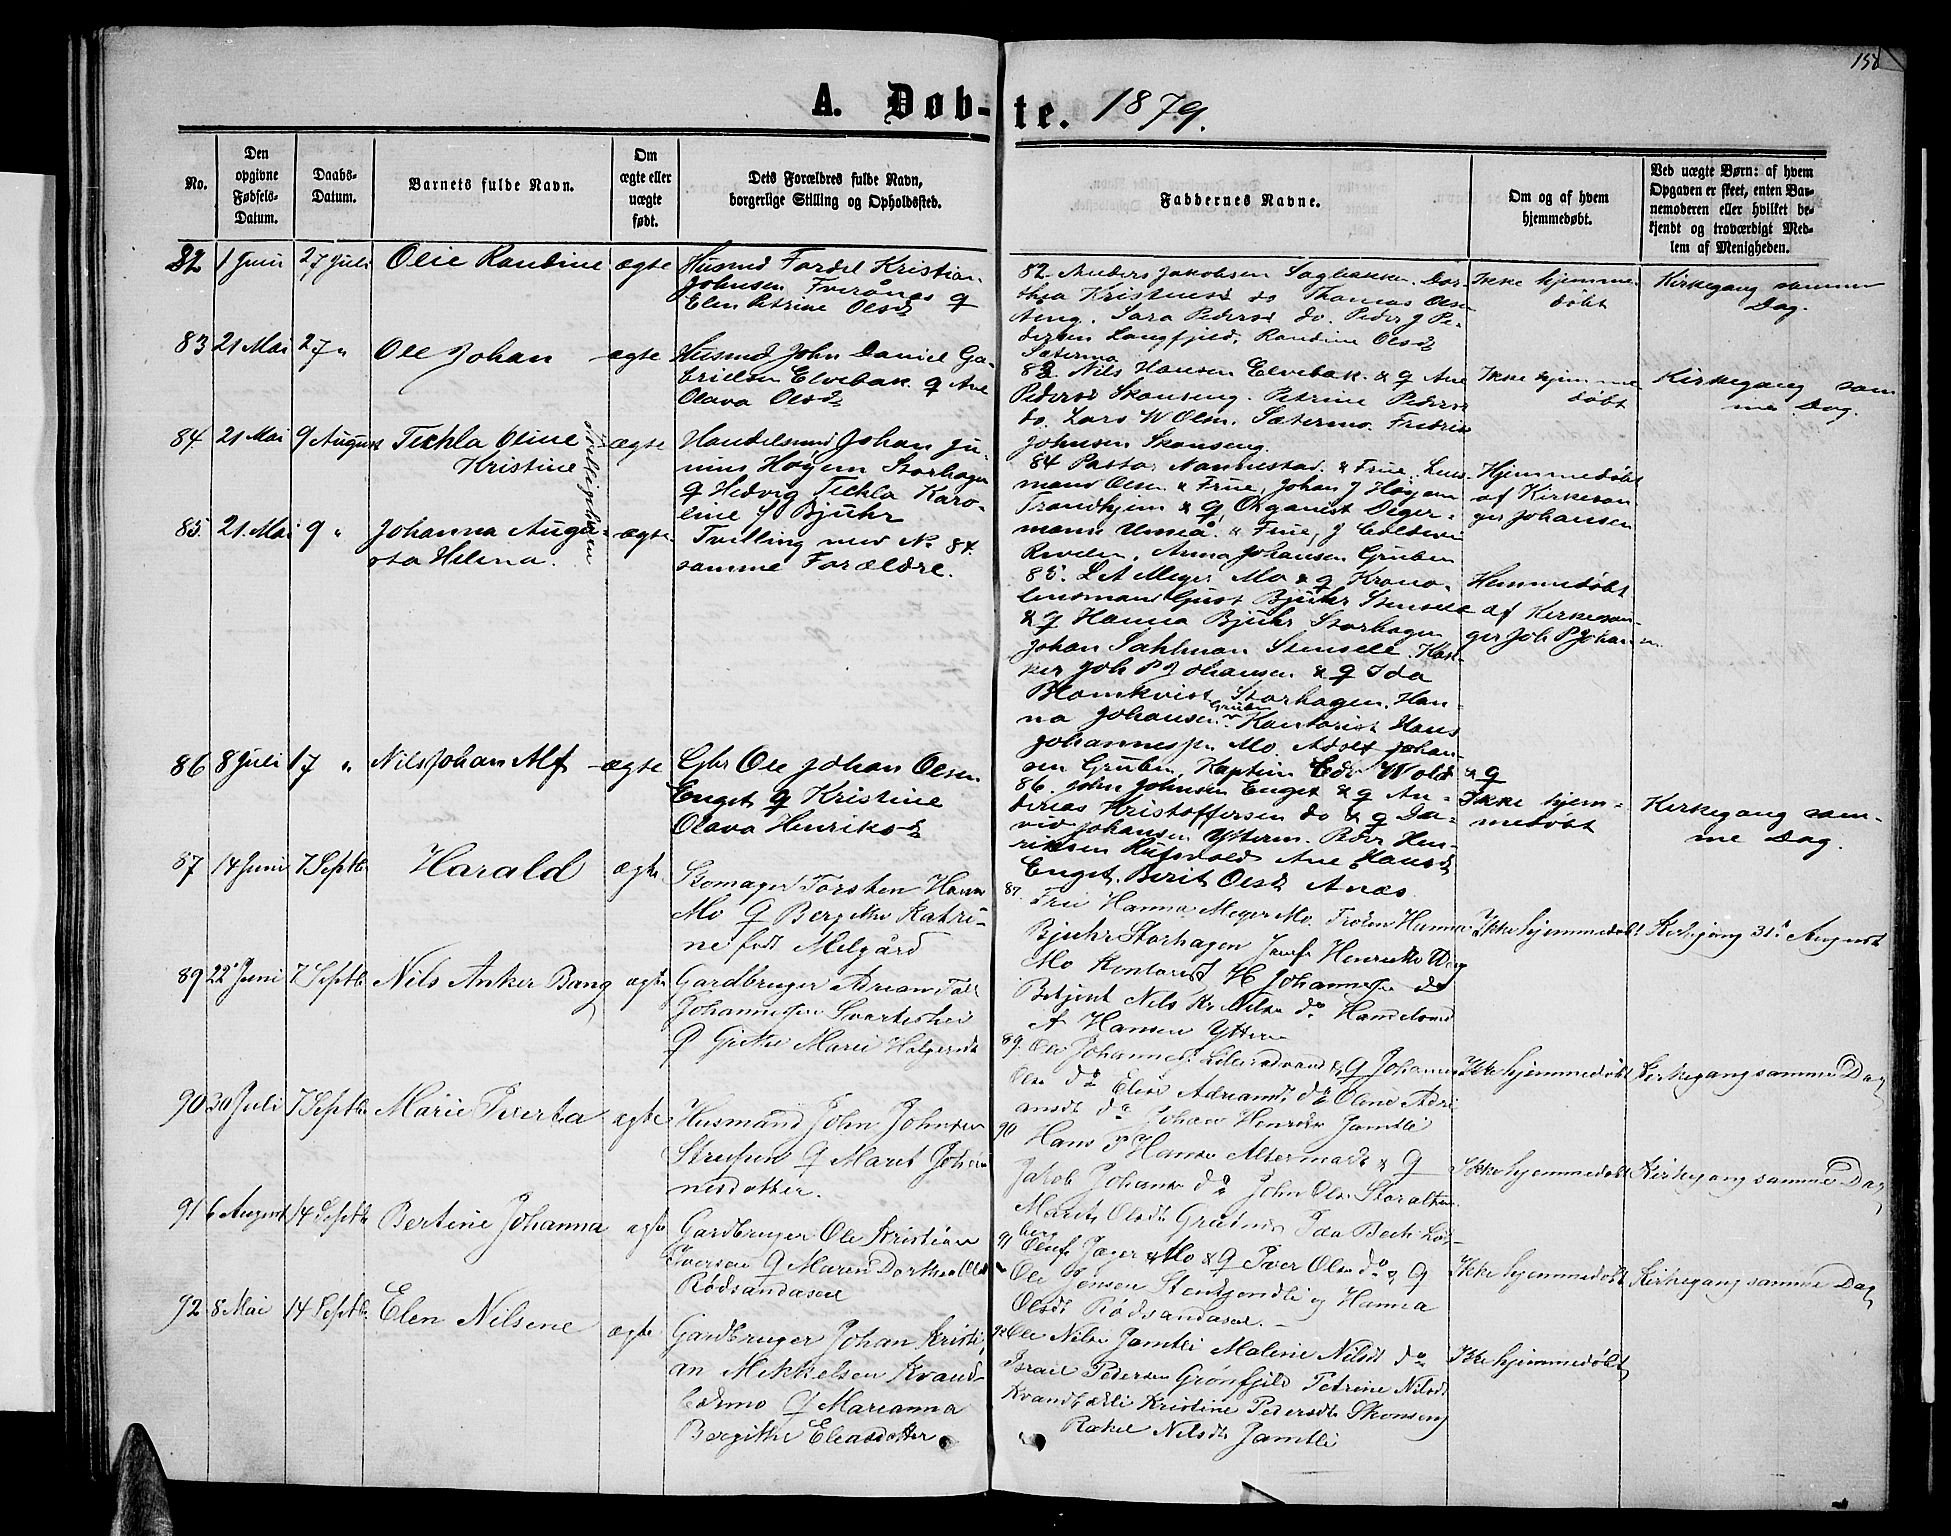 158
A. Døb-te. 1879.
No.
Den opgivne Fødsels-Datum.
Daabs-Datum.
Barnets fulde Navn.
Om ægte eller uægte født.
Dets Forældres fulde Navn, borgerlige Stilling og Opholdssted.
Faddernes Navne.
Om og af hvem hjemmedøbt.
Ved uægte Børn: af hvem Opgaven er skeet, enten Barnemoderen eller hvilket bekjendt og troværdigt Medlem af Menigheden.
82 1 Juni 27 Juli Olie Randine ægte
Husmd Fordel Kristian
Johnsen Tverånes &
Elen Petrine Olsd
82. Anders Jakobsen Sagbakken. Dor-
thea Kristensd do Thomas Olsen
Aeng. Sara Pedersd do. Peder J Pe-
dersen Langfjeld, Randine Olsd
Sæterma
Ikke hjemme-
døbt
Kirkegang samme
Dag.
83 21 Mai 27 " Ole Johan ægte
Husmd John Daniel Ga-
brielsen Elvebak & Ane
Olava Olsd
83. Nils Hansen Elvebak & & Ane
Pedersd Skonseng. Petrine Pedersd
do. Lars W Olsn. Sætermo. Fredrik
Johnsen Skonseng.
Ikke hjemme
døbt
Kirkegang sam
me Dag.
84. 21 Mai 9 August Teckla Oline
Kristine
Tvillingsøstre
ægte
Handelsmd Johan Ju-
nius Høyem Storhagen
& Hedvig Teckla Karo-
line f Bjuhr
84 Pastor Nannestad & Frue, Lens
mand Olsen & Frue, Johan J Høyem
Trondhjem & & Organist Deger-
mans Umeå & Frue, J Coldevin
Revelen, Anna Johansen Gruben
Hjemmedøbt
af Kirkesan
ger Johansen
85. 21. Mai 9 " Johanna Augu-
sta Helena. ægte
Tvilling med No 84.
samme Forældre.
85. L A Meyer Mo & & Krono-
lensmand Gust Bjuhr Stensele
& & Hanna Bjuhr Storhagen
Johan Sahlman Stensele. Kas-
ker Joh P Johansen & & Ida
Blomkvist Storhagen. Han-
na Johansen Gruben Kontorist Hans
Johannessen Mo. Adolf Johan
sen Gruben, Kaptein Edv Wold & &
Hemmedøbt
af Kirkesan-
ger Joh P Johan
86 8 Juli 17 " Nils Johan Alf ægte
Gbr Ole Johan Olsen
Enget & Kristine
Olava Henriksd
86. John Johnsen Enget & & An-
derias Kristoffersen do & & Da-
vid Johansen Ytterm. Peder Hen-
riksen Ane Hansd
Enget. Berit Olsd Anæs.
Ikke hjem-
medøbt
Kirkegang sam-
me Dag.
87 14 Juni 7 Septbr Harald ægte
Skomager Torsten Hansen
Mo & Bergitte Katri-
ne født Melgård
87. Frue Hanna Meyer Mo. Frøken Hanna
Bjuhr Storhagen Henrikke
Mo Kontorist H Johannesen do
Betjent Nils Kr Nilsen do Handelsmd
A Hansen Ytteren
Ikke hjemmedøbt
Kirkegang 31te August
89 22 Juni 7 Septbr Nils Anker Bang ægte
Gardbruger Adrian
Johannessen Svartisheii
& Marie Holgersdt
89. Ole Johannes Lillestrand & & Johannes
Olsen do Elise Adriansdt do Oline Adri
ansdt do Johan Henrik Jamtli
Ikke hjemmedøbt
Kirkegang samme Dag
90 30 Juli 7 Septbr Marie Iverba ægte
Husmand John Johnsen
& Maret Johan
nesdatter.
90 Hans P Hansen Altermark & &
Jakob Johansen do John Olsen Storalteren
Marit Olsdt Grutnes Ida Bech
Ikke hjemmedøbt
Kirkegang samme Dag
91 6 August 14 Septbr Bertine Johanna ægte
Gardbruger Ole Kristian
Iversen & Maren Dorthea Olsdt
Rødsandaasen
91 Oluf Jæger Mo & & Iver Olsen do & &
Ole Jensen og Hanna
Olsdt Rødsandaasen.
Ikke hjemmedøbt
Kirkegang samme Dag
92 8 Mai 14 Septbr Elen Nilsene ægte
Gardbruger Johan Kristi-
an Mikkelsen Kvand-
& Marianna
Bergithe Eliasdatter
92 Ole Nilsen Jamtli Malene Nilsdt do
Israel Pedersen Grønfjeld Petrine Nilsdt
Kristine Pedersdt Skonseng
Rakel Nilsdt Jamtli
Ikke hjemmedøbt